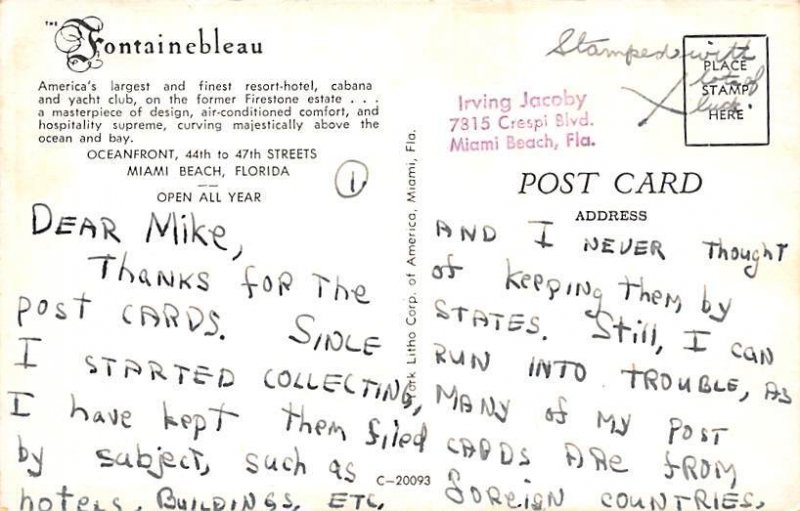 THE
Fontainebleau
America's largest and finest resort-hotel, cabana
and yacht club, on the former Firestone estate . . .
a masterpiece of design, air-conditioned comfort, and
hospitality supreme, curving majestically above the
ocean and bay.
OCEANFRONT, 44th to 47th STREETS
MIAMI BEACH, FLORIDA
OPEN ALL YEAR
1
DEAR Mike,
THANKS FOR THE
POST CARDS. SINCE
I STARTED COLLECTING,
I have kept them filed
by subject, such as
hotels, BUILDINGS, ETC.
York Litho Corp. of America, Miami, Fla.
C-20093
Stamped with
lots of
luck.
Irving Jacoby
7315 Crespi Blvd.
Miami Beach, Fla.
PLACE
STAMP
HERE
POST CARD
ADDRESS
AND I NEVER Thought
of keeping them by
STATES. Still, I can
RUN INTO TROUBLE, AS
MANY of MY POST
CARDS ARE FROM
foreign COUNTRIES.